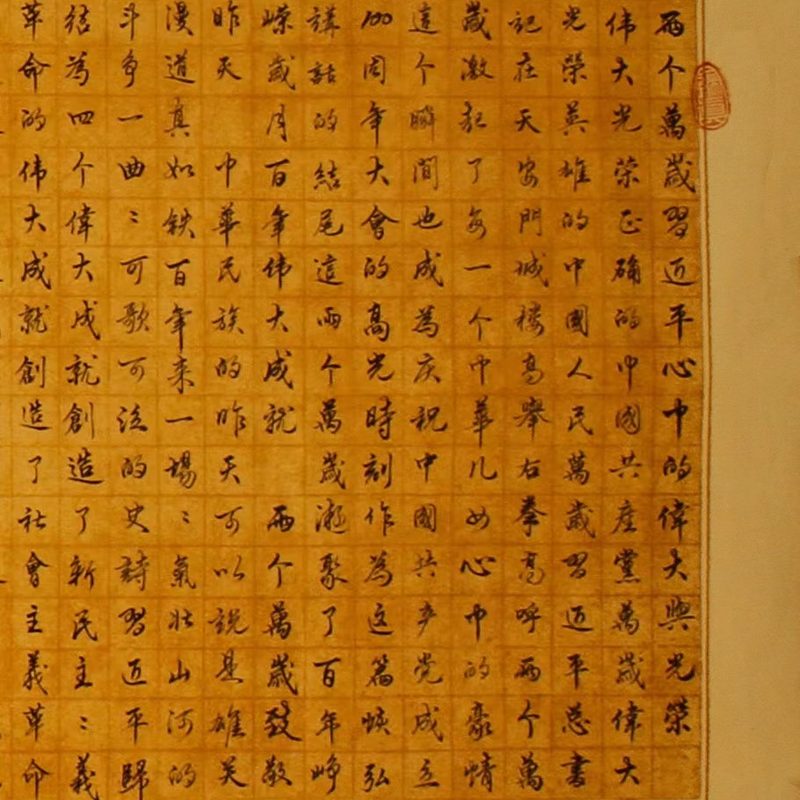 兩个萬歲習近平心中的偉大與光榮
伟大光荣正确的中國共產黨萬歲偉大
光榮英雄的中國人民萬歲習近平总書
記在天安門城楼高舉右拳高呼兩个萬
歲激起了每一个中華儿女心中的豪情
這个瞬間也成為庆祝中國共产党成立
100周年大會的高光時刻作為这篇恢弘
講話的結尾這兩个萬歲凝聚了百年峥
嵘歲月百年伟大成就 兩个萬歲致敬
昨天 中華民族的昨天可以說是雄关
漫道真如铁百年来一場〻氣壮山河的
斗争一曲〻可歌可泣的史詩習近平歸
结為四个偉大成就創造了新民主〻義
革命的伟大成就創造了社會主義革命